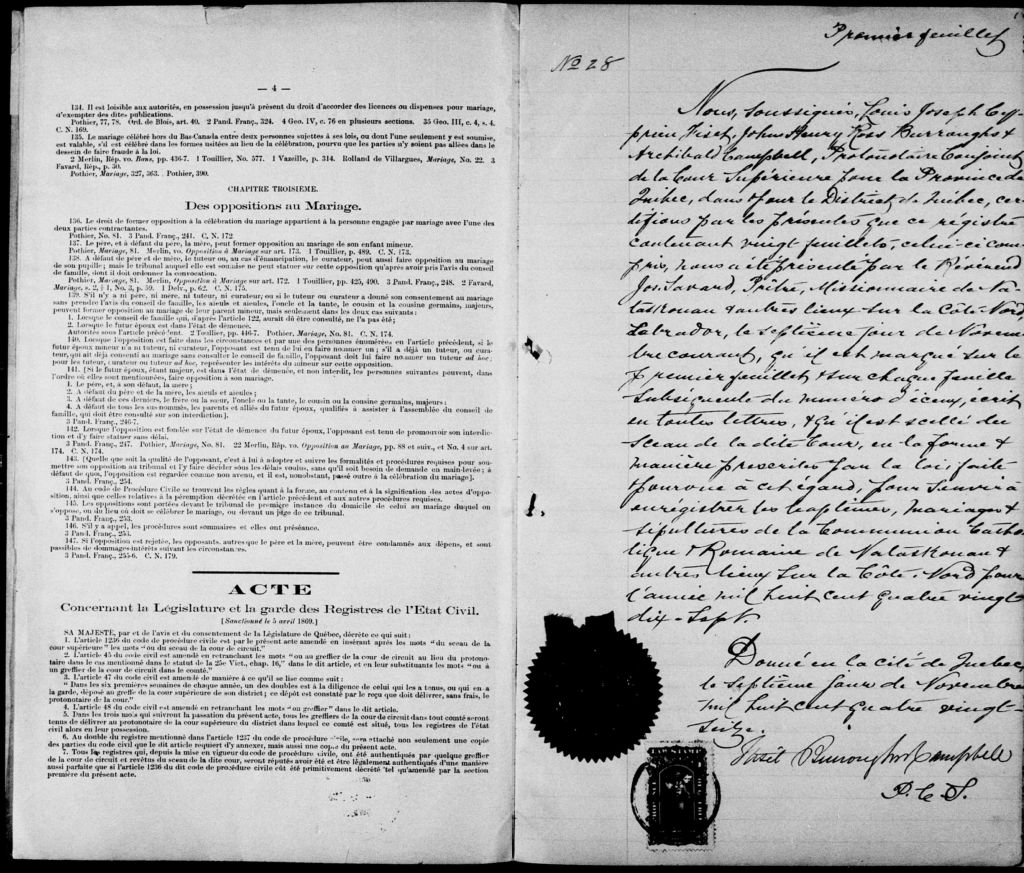 — 4 —
134. Il est loisible aux autorités, en possession jusqu'à présent du droit d'accorder des licences ou dispenses pour mariage,
d'exempter des dites publications.
Pothier, 77, 78. Ord. de Blois, art. 40. 2 Pand. Franç., 324. 4 Geo. IV, c. 76 en plusieurs sections. 35 Geo. III, c. 4, s. 4.
C. N. 169.
135. Le mariage célébré hors du Bas-Canada entre deux personnes sujettes à ses lois, ou dont l'une seulement y est soumise,
est valable, s'il est célébré dans les formes usitées au lieu de la célébration, pourvu que les parties n'y soient pas allées dans le
dessein de faire fraude à la loi.
2 Merlin, Rép. vo. Bans, pp. 436-7. 1 Touillier, No. 577. 1 Vazeille, p. 314. Rolland de Villargues, Mariage, No. 22. 3
Favard, Rép., p. 50.
Pothier, Mariage, 327, 363. Pothier, 390.
CHAPITRE TROISIÈME.
Des oppositions au Mariage.
136. Le droit de former opposition à la célébration du mariage appartient à la personne engagée par mariage avec l'une des
deux parties contractantes.
Pothier, No. 81. 3 Pand. Franç., 241. C. N. 172
137. Le père, et à défaut du père, la mère, peut former opposition au mariage de son enfant mineur.
Pothier, Mariage, 81. Merlin, vo. Opposition à Mariage sur art. 173. 1 Touillier, p. 489. C. N. 173.
138. A défaut de père et de mère, le tuteur ou, au cas d'émancipation, le curateur, peut aussi faire opposition au mariage
de son pupille ; mais le tribunal auquel elle est soumise ne peut statuer sur cette opposition qu'après avoir pris l'avis du conseil
de famille, dont il doit ordonner la convocation.
Pothier, Mariage, 81. Merlin, Opposition à Mariage sur art. 172. 1 Touillier, pp. 425, 490. 3 Pand. Franç., 248. 2 Favard,
Mariage, s. 2, § 1, No. 3, p. 59. 1 Delv., p. 62. C. N. 175.
139. S'il n'y a ni père, ni mère, ni tuteur, ni curateur, ou si le tuteur ou curateur a donné son consentement au mariage
sans prendre l'avis du conseil de famille, les aïeuls et aïeules, l'oncle et la tante, le cousin et la cousine germains, majeurs,
peuvent former opposition au mariage de leur parent mineur, mais seulement dans les deux cas suivants :
1. Lorsque le conseil de famille qui, d'après l'article 122, aurait dû être consulté, ne l'a pas été ;
2. Lorsque le futur époux est dans l'état de démence.
Autorités sous l'article précédent. 2 Touillier, pp. 446-7. Pothier, Mariage, No. 81. C. N. 174.
140. Lorsque l'opposition est faite dans les circonstances et par une des personnes énumérées en l'article précédent, si le
futur époux mineur n'a ni tuteur, ni curateur, l'opposant est tenu de lui en faire nommer un ; s'il a déjà un tuteur, ou cura-
teur, qui ait déjà consenti au mariage sans consulter le conseil de famille, l'opposant doit lui faire nommer un tuteur ad hoc,
pour les tuteur, curateur ou tuteur ad hoc, représenter les intérêts du mineur sur cette opposition.
141. [Si le futur époux, étant majeur, est dans l'état de démence, et non interdit, les personnes suivantes peuvent, dans
l'ordre où elles sont mentionnées, faire opposition à son mariage.
1. Le père, et, à son défaut, la mère ;
2. A défaut du père et de la mère, les aïeuls et aïeules ;
3. A défaut de ces derniers, le frère ou la sœur, l'oncle ou la tante, le cousin ou la cousine germains, majeurs ;
4. A défaut de tous les sus-nommés, les parents et alliés du futur époux, qualifiés à assister à l'assemblée du conseil de
famille, qui doit être consulté sur son interdiction].
3 Pand. Franç., 246-7.
142. Lorsque l'opposition est fondée sur l'état de démence du futur époux, l'opposant est tenu de promouvoir son interdic-
tion et d'y faire statuer sans délai.
3 Pand. Franç., 247. Pothier, Mariage, No. 81. 22 Merlin, Rép. vo. Opposition au Mariage, pp. 88 et suiv., et No. 4 sur art.
174. C. N. 174.
143. [Quelle que soit la qualité de l'opposant, c'est à lui à adopter et suivre les formalités et procédures requises pour sou-
mettre son opposition au tribunal et l'y faire décider sous les délais voulus, sans qu'il soit besoin de demande en main-levée ; à
défaut de quoi, l'opposition est regardée comme non avenu, et il est, nonobstant, passé outre à la célébration du mariage].
3 Pand. Franç., 254.
144. Au code de Procédure Civile se trouvent les règles quant à la forme, au contenu et à la signification des actes d'oppo-
sition, ainsi que celles relatives à la péremption décrétée en l'article précédent et aux autres procédures requises.
145. Les oppositions sont portées devant le tribunal de première instance du domicile de celui au mariage duquel on
s'oppose, ou du lieu où doit se célébrer le mariage, ou devant un juge de ce tribunal.
3 Pand. Franç., 253.
146. S'il y a appel, les procédures sont sommaires et elles ont préséance.
3 Pand. Franç., 255.
147. Si l'opposition est rejetée, les opposants, autres que le père et la mère, peuvent être condamnés aux dépens, et sont
passibles de dommages-intérêts suivant les circonstances.
3 Pand. Franç., 255-6. C. N. 179.
ACTE
Concernant la Législature et la garde des Registres de l'Etat Civil.
[Sanctionné le 5 avril 1869.]
SA MAJESTE, par et de l'avis et du consentement de la Législature de Québec, décrète ce qui suit :
1. L'article 1236 du code de procédure civile est par le présent acte amendé en insérant après les mots "du sceau de la
cour supérieure" les mots "ou du sceau de la cour de circuit."
2. L'article 45 du code civil est amendé en retranchant les mots "ou au greffier de la cour de circuit au lieu du protono-
taire dans le cas mentionné dans le statut de la 25e Vict., chap. 16," dans le dit article, et en leur substituants les mots "ou à
un greffier de la cour de circuit dans le comté."
3. L'article 47 du code civil est amendé de manière à ce qu'il se lise comme suit :
"Dans les six premières semaines de chaque année, un des doubles est à la diligence de celui qui les a tenus, ou qui en a
la garde, déposé au greffe de la cour supérieure de son district ; ce dépôt est constaté par le reçu que doit délivrer, sans frais, le
protonotaire de la cour."
4. L'article 48 du code civil est amendé en retranchant les mots "ou greffier" dans le dit article.
5. Dans les trois mois qui suivront la passation du présent acte, tous les greffiers de la cour de circuit dans tout comté seront
tenus de délivrer au protonotaire de la cour supérieure du district dans lequel ce comté est situé, tous les registres de l'état
civil alors en leur possession.
6. Au double du registre mentionné dans l'article 1237 du code de procédure civile, sera attaché non seulement une copie
des parties du code civil que le dit article requiert d'y annexer, mais aussi une copie du présent acte.
7. Tous les registres qui, depuis la mise en vigueur du code de procédure civile, ont été authentiqués par quelque greffier
de la cour de circuit et revêtus du sceau de la dite cour, seront réputés avoir été et être légalement authentiqués d'une manière
aussi parfaite que si l'article 1236 du dit code de procédure civile eût été primitivement décrété tel qu'amendé par la section
première du présent acte.
Premier feuillet
No 28
Nous, soussignés, Louis Joseph Cy-
prien Fiset, John Henry Ross Burroughs &
Archibald Campbell, Protonotaire Conjoint
de la Cour Supérieure pour la Province de
Québec, dans & pour le District de Québec, cer-
tifions par les présentes que ce régistre
contenant vingt feuillets, celui-ci com-
pris, nous a été présenté par le Révérend
Jos. Savard, Prêtre, Missionnaire de Na-
taskouan & autres lieux sur la Côte-Nord
Labrador, le septième jour de Novem-
bre courant, qu'il est marqué sur le
premier feuillet & sur chaque feuille
subséquente du numéro d'iceux, écrit
en toutes lettres, & qu'il est scellé du
Sceau de la dite Cour, en la forme &
manière prescrites par la loi, faite
& pourvue à cet égard, pour servir à
enregistrer les baptêmes, mariages &
sépultures de la Communion Catho-
lique & Romaine de Nataskouan &
autres lieux sur la Côte-Nord pour
l'année mil huit cent quatre vingt
dix-sept.
Donné en la cité de Québec,
le septième jour de Novembre
mil huit cent quatre vingt-
seize.
Fiset Burroughs & Campbell
P. C. S.